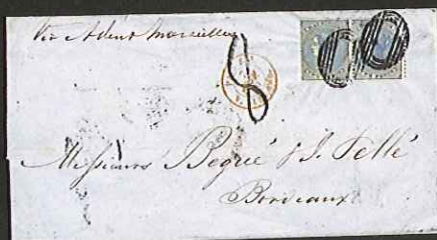 Via Aden & Marseilles
8
Messieurs Begué & J. Fellé
Bordeaux